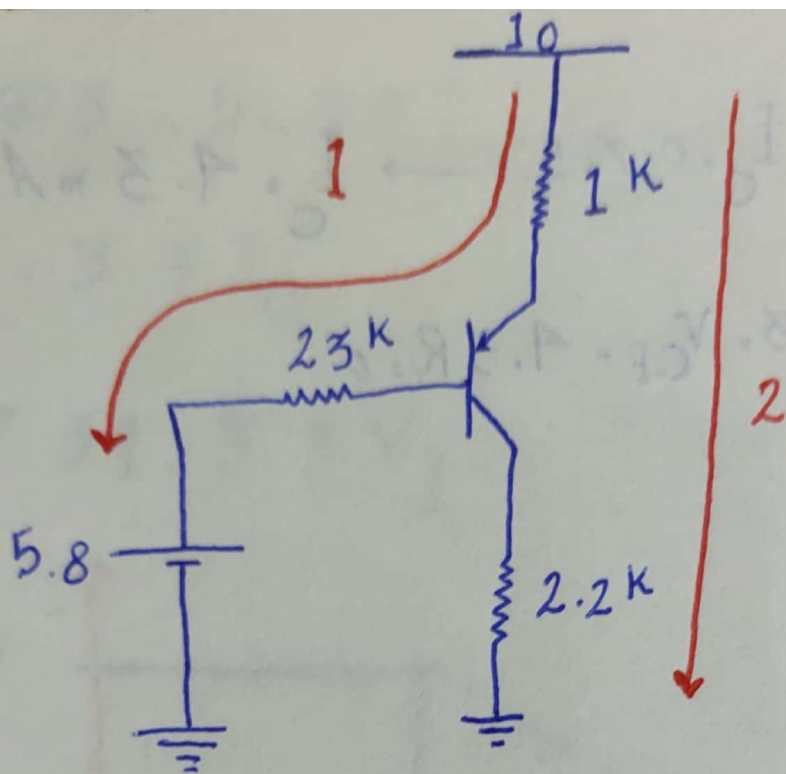 10
1
1 K
23 K
2
5.8
2.2 K